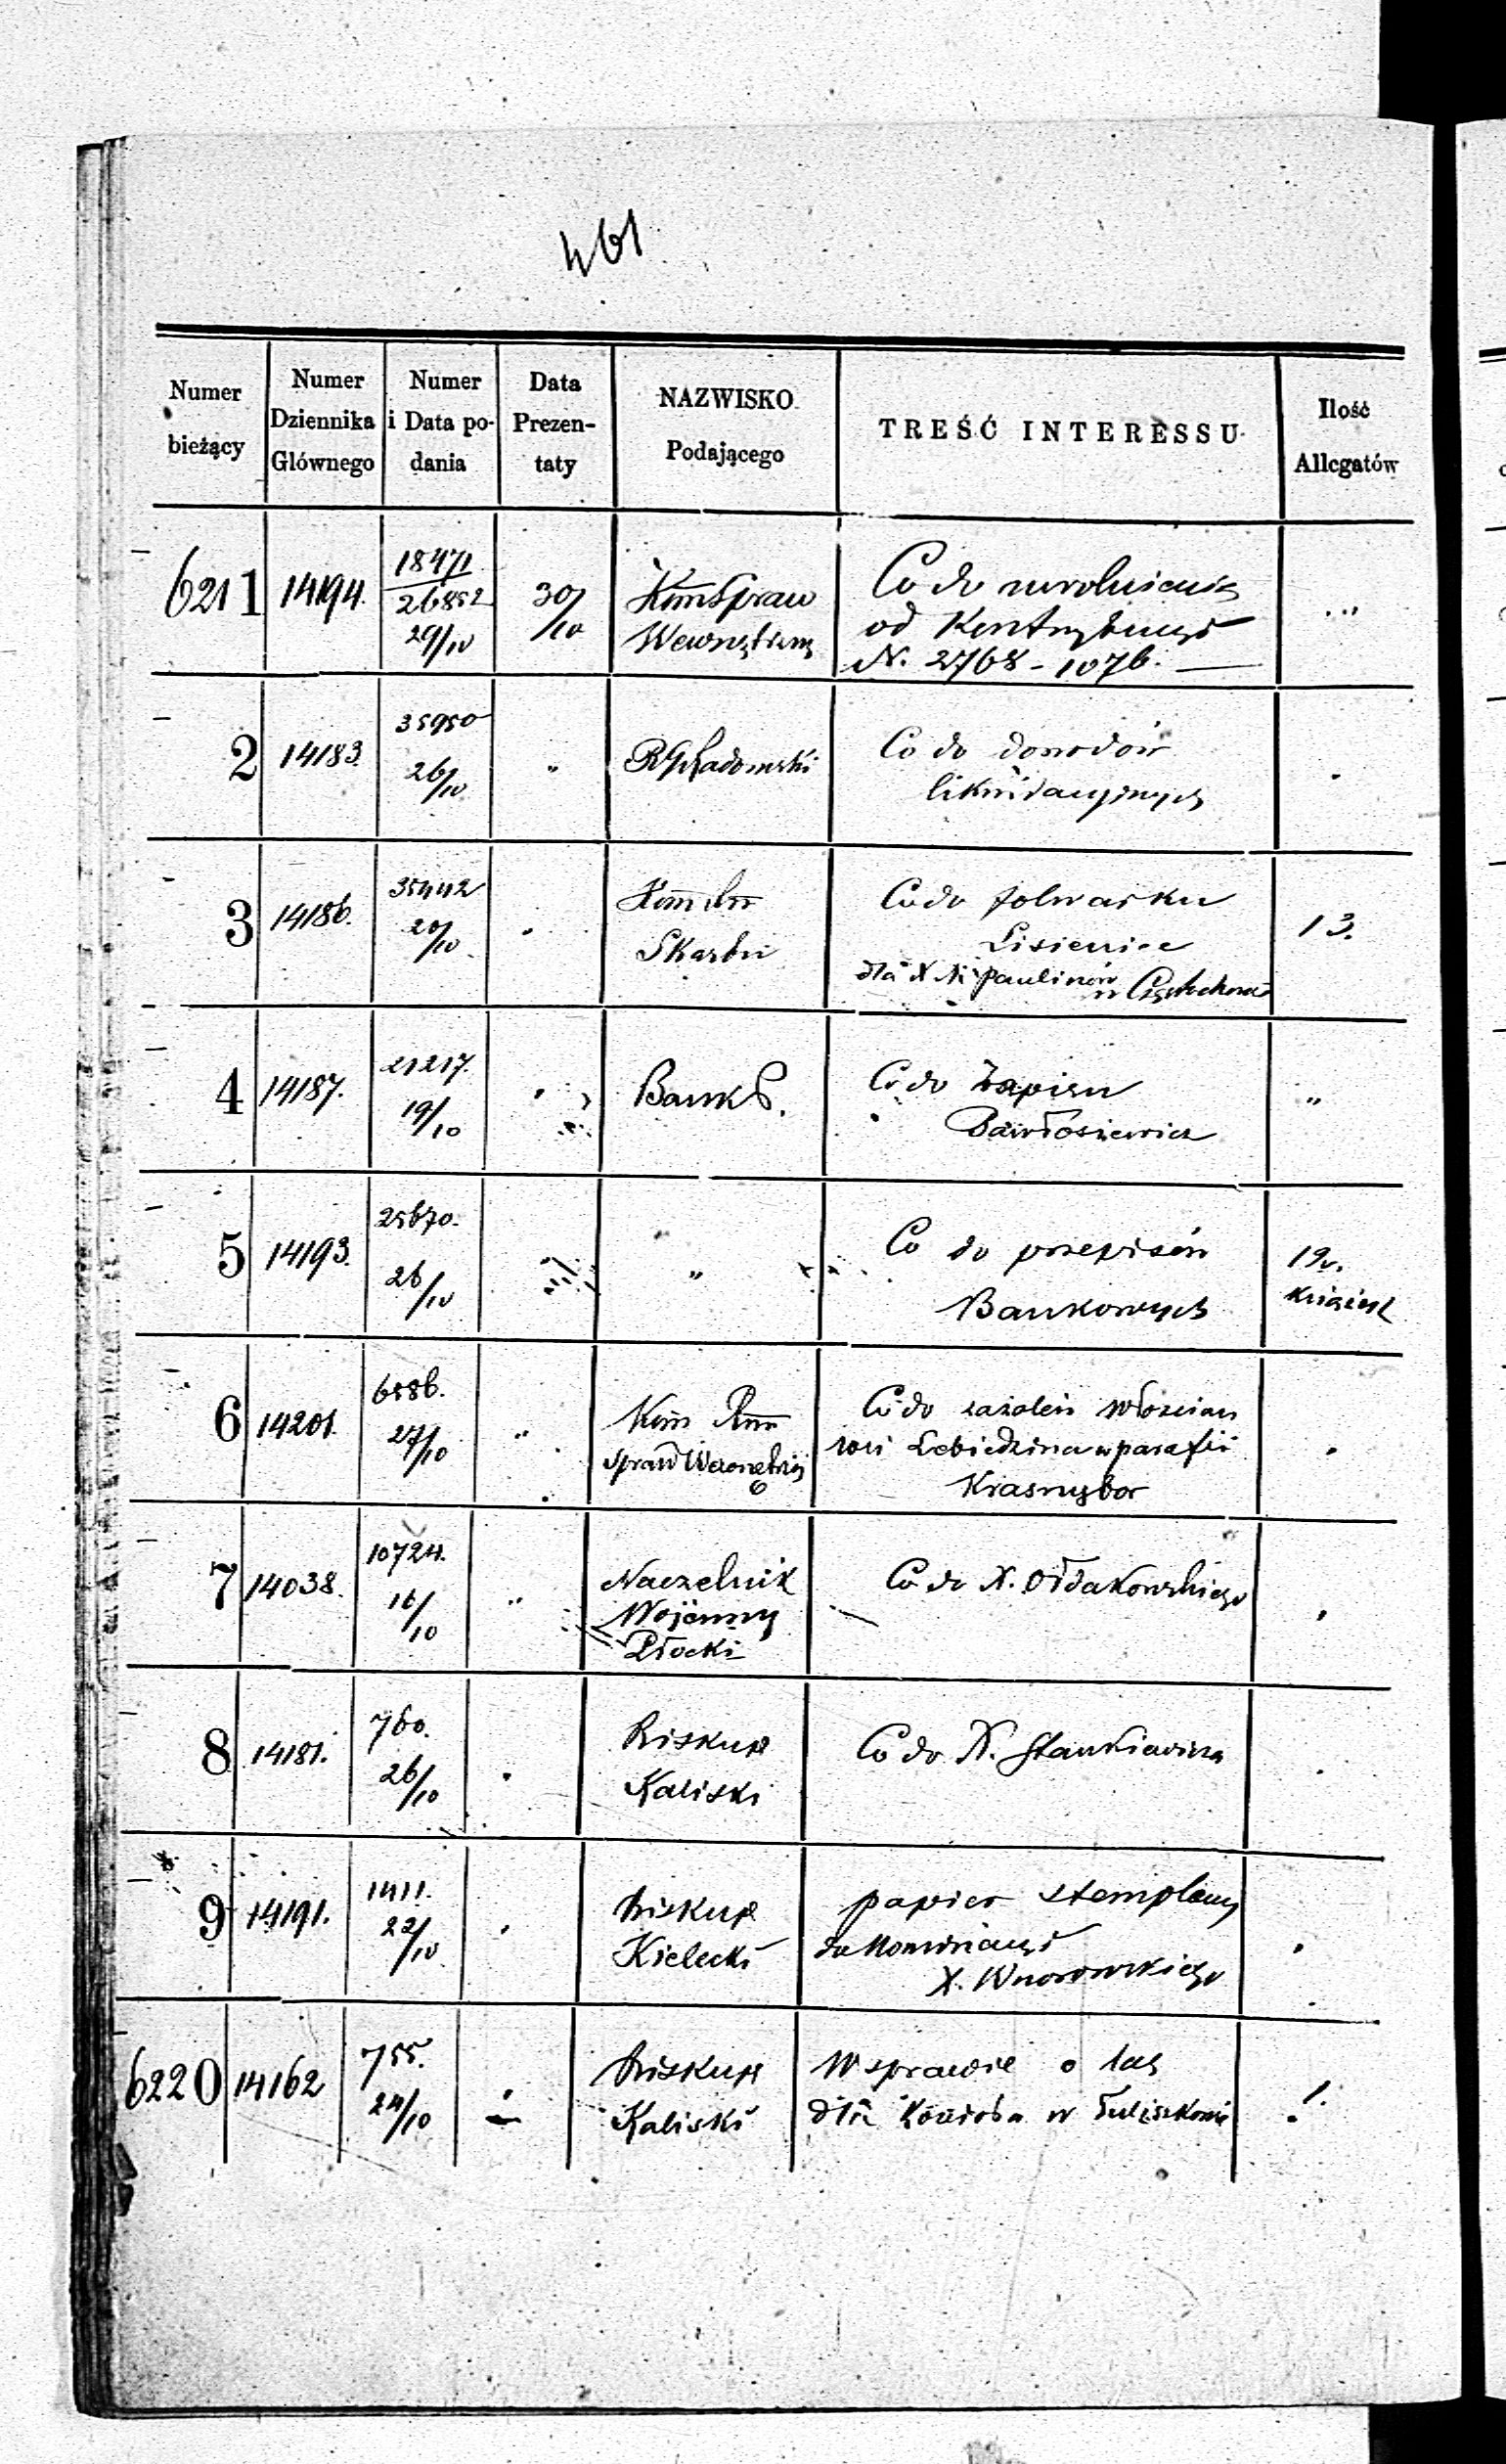 461
Numer bieżący
Numer Dziennika Głównego
Numer i Data podania
Data Prezentaty
NAZWISKO Podającego
TREŚĆ INTERESSU
Ilość Allegatów
6211 14194. 18471 30/10 Kom Spraw Co do uwolnienia
26852 Wewnętrzny od Kontrybucyi
29/10 N. 2768 - 1076.
2 14183. 35950 " RGRadomski Co do dowodów
26/10 likwidacyjnych
3 14186. 35442 Co do folwarku 13.
20/10 Skarbu Lisienice
dla XX Paulinów
w Częstochowie
4 14187. 21217. Bank P. Co do Zapisu "
19/10 Pawłosiewicz
5 14193. 25670. " Co do przepisów 19.
26/10 Bankowych książek
6 14201. 6586. " Kom Rzą Co do zażaleń włościan
27/10 Spraw Wewnętrzn wsi Lebiedzina w parafii
Krasnybor
7 14038. 10724. " Naczelnik Co do X. Ołdakowskiego
16/10 Wojenny
Płocki
8 14181. 760. Biskup Co do X. Stankiewicza
26/10 Kaliski
9 14191. 1411. Biskup papier stemplowy
22/10 Kielecki do Nominacyi
X. Wnorowskiego
6220 14162 755. Biskup W sprawie o las 1.
24/10 Kaliski dla Kościoła w Tuliszkowie